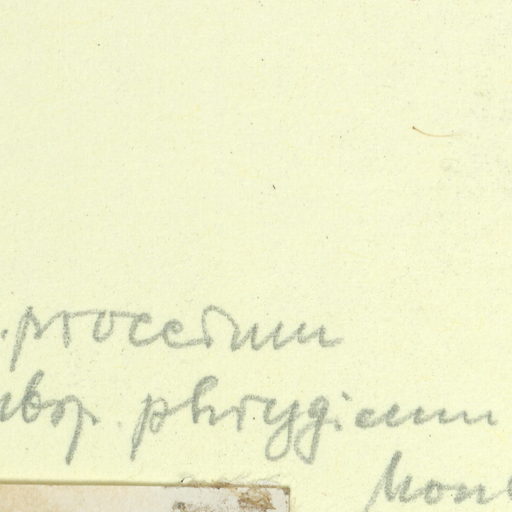 . procerum
ubsp. phrygicum
Mont